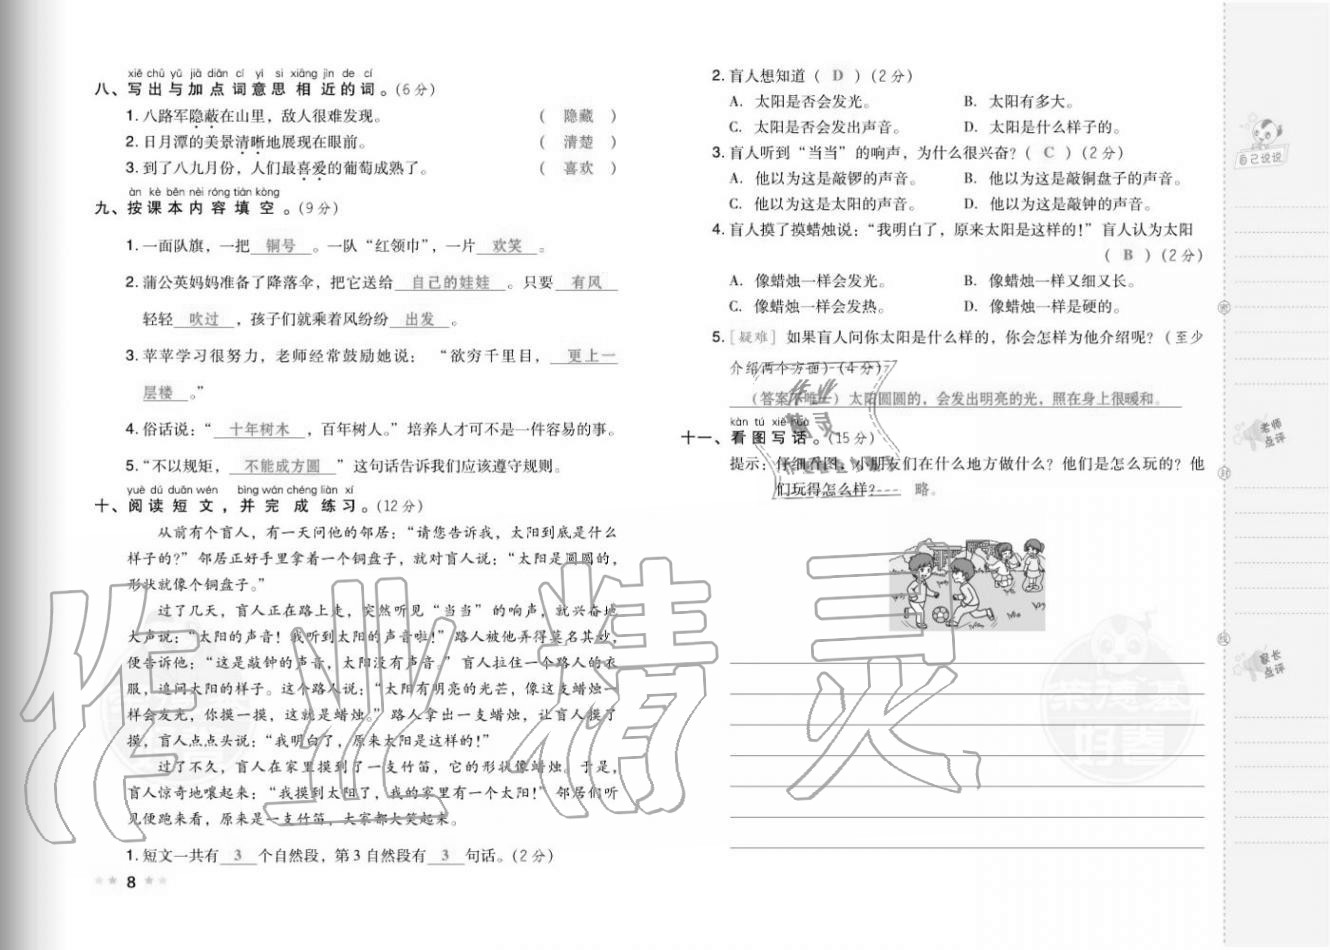 xiě chū yǔ jiā diǎn cí yì si xiāng jìn de cí
八、写出与加点词意思相近的词。(6分)
1. 八路军隐蔽在山里，敌人很难发现。 （ 隐藏 ）
2. 日月潭的美景清晰地展现在眼前。 （ 清楚 ）
3. 到了八九月份，人们最喜爱的葡萄成熟了。 （ 喜欢 ）
àn kè běn nèi róng tián kòng
九、按课本内容填空。(9分)
1. 一面队旗，一把 铜号 。一队“红领巾”，一片 欢笑 。
2. 蒲公英妈妈准备了降落伞，把它送给 自己的娃娃 。只要 有风
轻轻 吹过 ，孩子们就乘着风纷纷 出发 。
3. 苹苹学习很努力，老师经常鼓励她说：“欲穷千里目， 更上一
层楼 。”
4. 俗话说：“ 十年树木 ，百年树人。”培养人才可不是一件容易的事。
5. “不以规矩， 不能成方圆 ”这句话告诉我们应该遵守规则。
yuè dú duǎn wén bìng wán chéng liàn xí
十、阅读短文，并完成练习。(12分)
从前有个盲人，有一天问他的邻居：“请您告诉我，太阳到底是什么
样子的？”邻居正好手里拿着一个铜盘子，就对盲人说：“太阳是圆圆的，
形状就像个铜盘子。”
过了几天，盲人正在路上走，突然听见“当当”的响声，就兴奋地
大声说：“太阳的声音！我听到太阳的声音啦！”路人被他弄得莫名其妙，
便告诉他：“这是敲钟的声音，太阳没有声音。”盲人拉住一个路人的衣
服，追问太阳的样子。这个路人说：“太阳有明亮的光芒，像这支蜡烛一
样会发光，你摸一摸，这就是蜡烛。”路人拿出一支蜡烛，让盲人摸了
摸，盲人点点头说：“我明白了，原来太阳是这样的！”
过了不久，盲人在家里摸到了一支竹笛，它的形状像蜡烛。于是，
盲人惊奇地嚷起来：“我摸到太阳了，我的家里有一个太阳！”邻居们听
见便跑来看，原来是一支竹笛，大家都大笑起来。
1. 短文一共有 3 个自然段，第3自然段有 3 句话。(2分)
8
2. 盲人想知道（ D ）(2分)
A. 太阳是否会发光。 B. 太阳有多大。
C. 太阳是否会发出声音。 D. 太阳是什么样子的。
3. 盲人听到“当当”的响声，为什么很兴奋？（ C ）(2分)
A. 他以为这是敲锣的声音。 B. 他以为这是敲铜盘子的声音。
C. 他以为这是太阳的声音。 D. 他以为这是敲钟的声音。
4. 盲人摸了摸蜡烛说：“我明白了，原来太阳是这样的！”盲人认为太阳
（ B ）(2分)
A. 像蜡烛一样会发光。 B. 像蜡烛一样又细又长。
C. 像蜡烛一样会发热。 D. 像蜡烛一样是硬的。
5. [疑难] 如果盲人问你太阳是什么样的，你会怎样为他介绍呢？（至少
介绍两个方面）(4分)
（答案不唯一）太阳圆圆的，会发出明亮的光，照在身上很暖和。
kàn tú xiě huà
十一、看图写话。(15分)
提示：仔细看图，小朋友们在什么地方做什么？他们是怎么玩的？他
们玩得怎么样？ 略。
自己说说
老师
点评
家长
点评
密
封
线
作业精灵
作业
精灵
荣德基
好卷